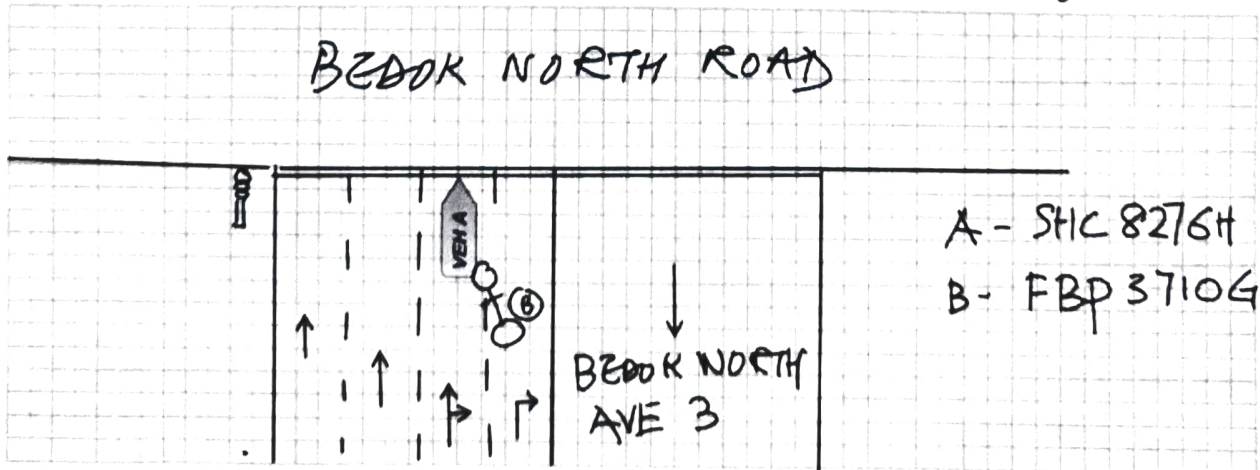 BEDOK NORTH ROAD
VEH A
B
A - SHC 8276H
B - FBP 3710G
BEDOK NORTH
AVE 3